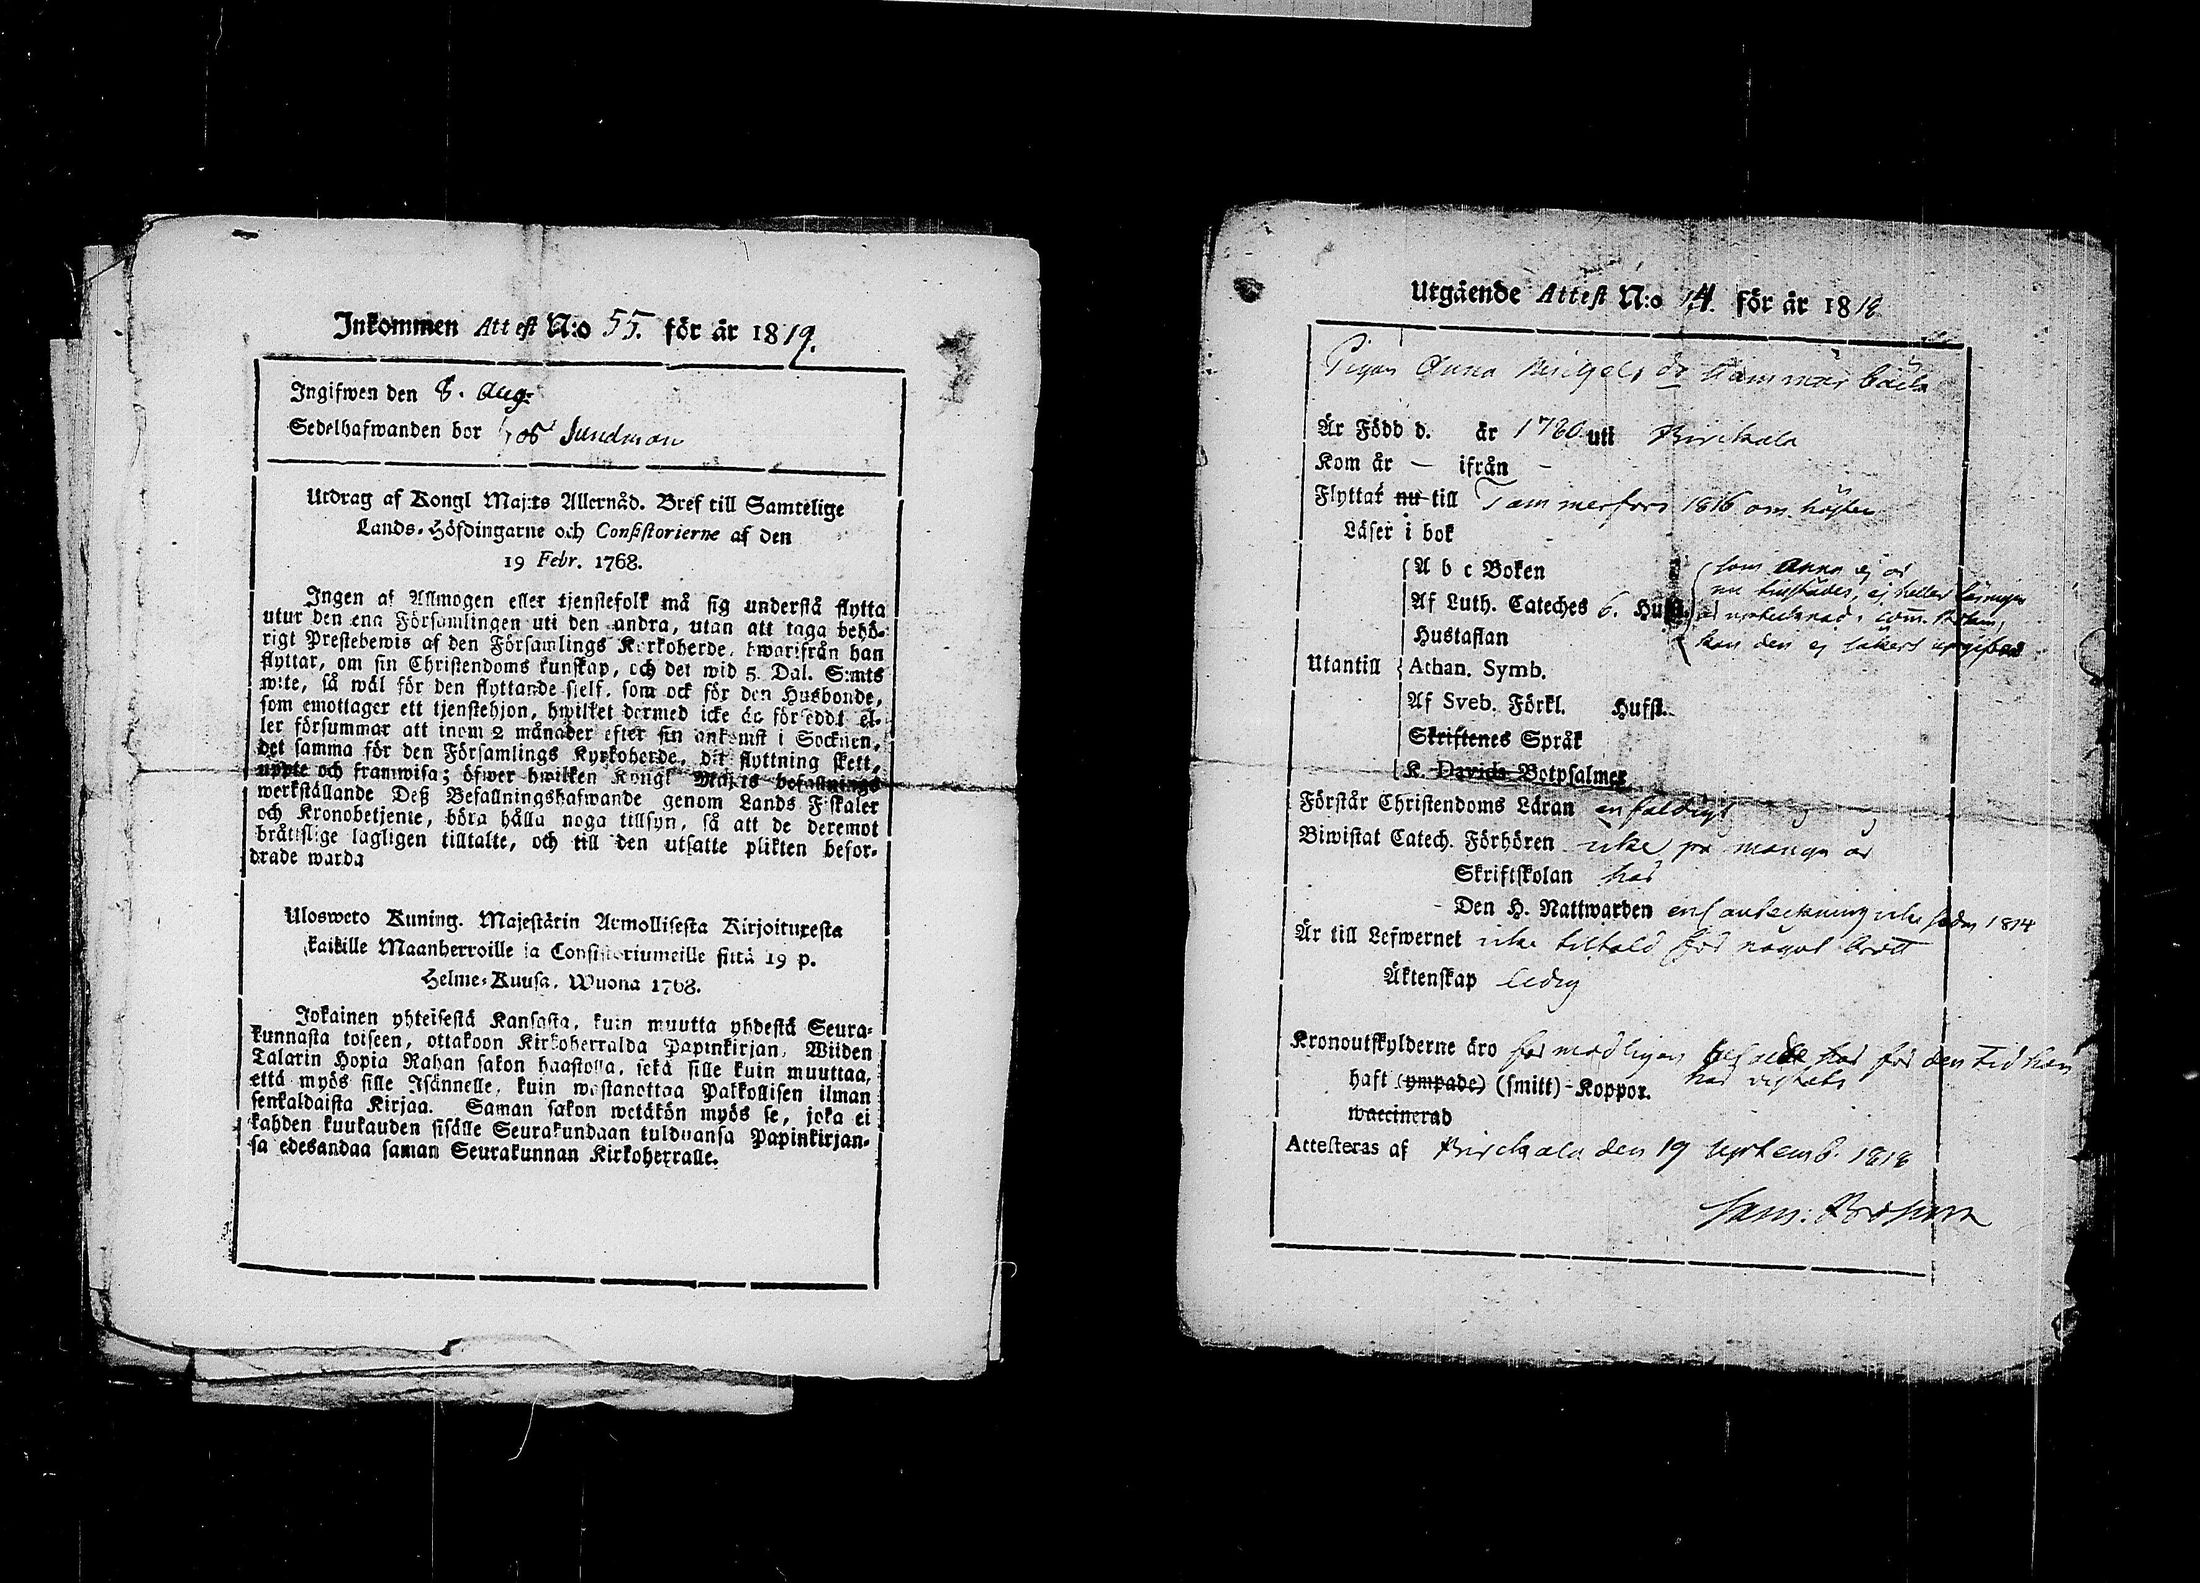 Inkommen Attest N:o 55. för år 1819.
Ingifwen den 8. Aug:
Sedelhafwanden bor hos Sundman
Utdrag af Kongl Maj:ts Allernåd. Bref till Samtelige
Lands-Höfdingarne och Consistorierne af den
19 Febr. 1768.
Ingen af Allmogen eller tjenstefolk må sig understå flytta
utur den ena Församlingen uti den andra, utan att taga behö-
rigt Prestebewis af den Församlings Kyrkoherde, hwarifrån han
flyttar, om sin Christendoms kunskap, och det wid 5. Dal. S:mts
wite, så wäl för den flyttande sjelf, som ock för den Husbonde,
som emottager ett tjenstehjon, hwilket dermed icke är försedt el-
ler försummar att inom 2 månader efter sin ankomst i Socknen,
det samma för den Församlings Kyrkoherde, dit flyttning skett,
uppte och framwisa; öfwer hwilken Kongl Maj:ts befallnings
werkställande Deß Befallningshafwande genom Lands Fiskaler
och Kronobetjente, böra hålla noga tillsyn, så att de deremot
bråttslige lagligen tilltalte, och till den utsatte plikten befor-
drade warda
Ulosweto Kuning. Majestätin Armollisesta Kirjoituxesta
kaikille Maanherroille ja Consistoriumeille siitä 19 p.
Helme-Kuusa. Wuona 1768.
Jokainen yhteisestä Kansasta, kuin muutta yhdestä Seura-
kunnasta toiseen, ottakoon Kirkoherralda Papinkirjan, Wiiden
Talarin Hopia Rahan sakon haastolla, sekä sille kuin muuttaa,
että myös sille Isännelle, kuin wastanottaa Palkollisen ilman
senkaldaista Kirjaa. Saman sakon wetäkön myös se, joka ei
kahden kuukauden sisälle Seurakundaan tulduansa Papinkirjan-
sa edesandaa saman Seurakunnan Kirkoherralle.
Utgående Attest N:o 14. för år 1818
Pigan Anna Michels dr Hammar backa
Är Född d. år 1780 uti Birckala
Kom år — ifrån —
Flyttat nu till Tammerfors 1816 om hösten
Läser i bok
A b c Boken
Af Luth. Cateches 6. Hufst.
som Anna ej är
nu tillstädes, ej heller läsningen
är antecknad i Com. Boken,
kan den ej säkert upgifvas
Hustaflan
Utantill Athan. Symb.
Af Sveb. Förkl. Hufst.
Skriftenes Språk
K. Davids Botpsalmer
Förstår Christendoms Läran enfaldigt
Biwistat Catech. Förhören icke på många år
Skriftskolan har
Den H. Nattwarden enl anteckning icke sedan 1814
Är till Lefwernet icke tiltald för något brott
Äktenskap ledig
Kronoutskylderne äro för den tid hon
har vistats
haft (ympade) (smitt)-Koppor.
waccinerad
Attesteras af Birckala den 19 Septemb. 1818
Sam: